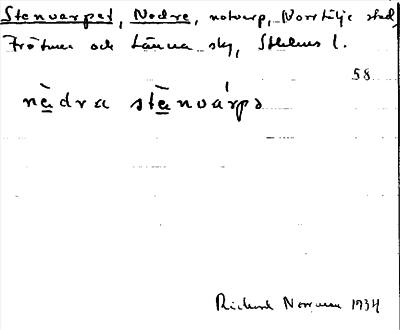 Stenvarpet, Nedre, notvarp, Norrtälje stad,
Frötuna och Länna sky, Sthlms l.
58
nèdra stènvárpə
Rickard Norrman 1934